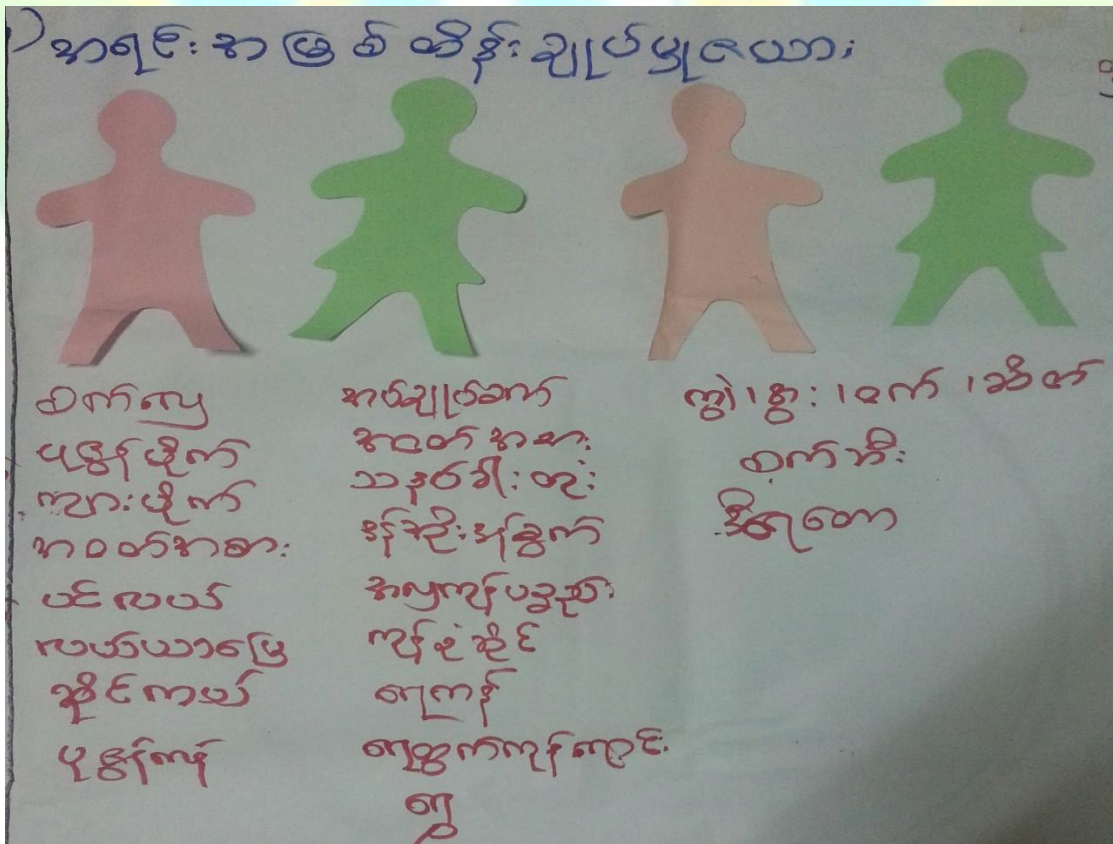 ၁) အရင်းအမြစ်ထိန်းချုပ်မှုဇယား
စက်လှေ
ပုဇွန်ပိုက်
ကျားပိုက်
အဝတ်အစား
ပင်လယ်
လယ်ယာမြေ
ဆိုင်ကယ်
ပုဇွန်ကန်
အပ်ချုပ်စက်
အဝတ်အစား
သနပ်ခါးတုံး
အလှကုန်ပစ္စည်း
ကုန်စုံဆိုင်
ရေကန်
ရေထွက်ကုန်ရောင်း
ရွှေ
ကျွဲ၊ နွား၊ ဝက်၊ ဆိတ်
စက်ဘီး